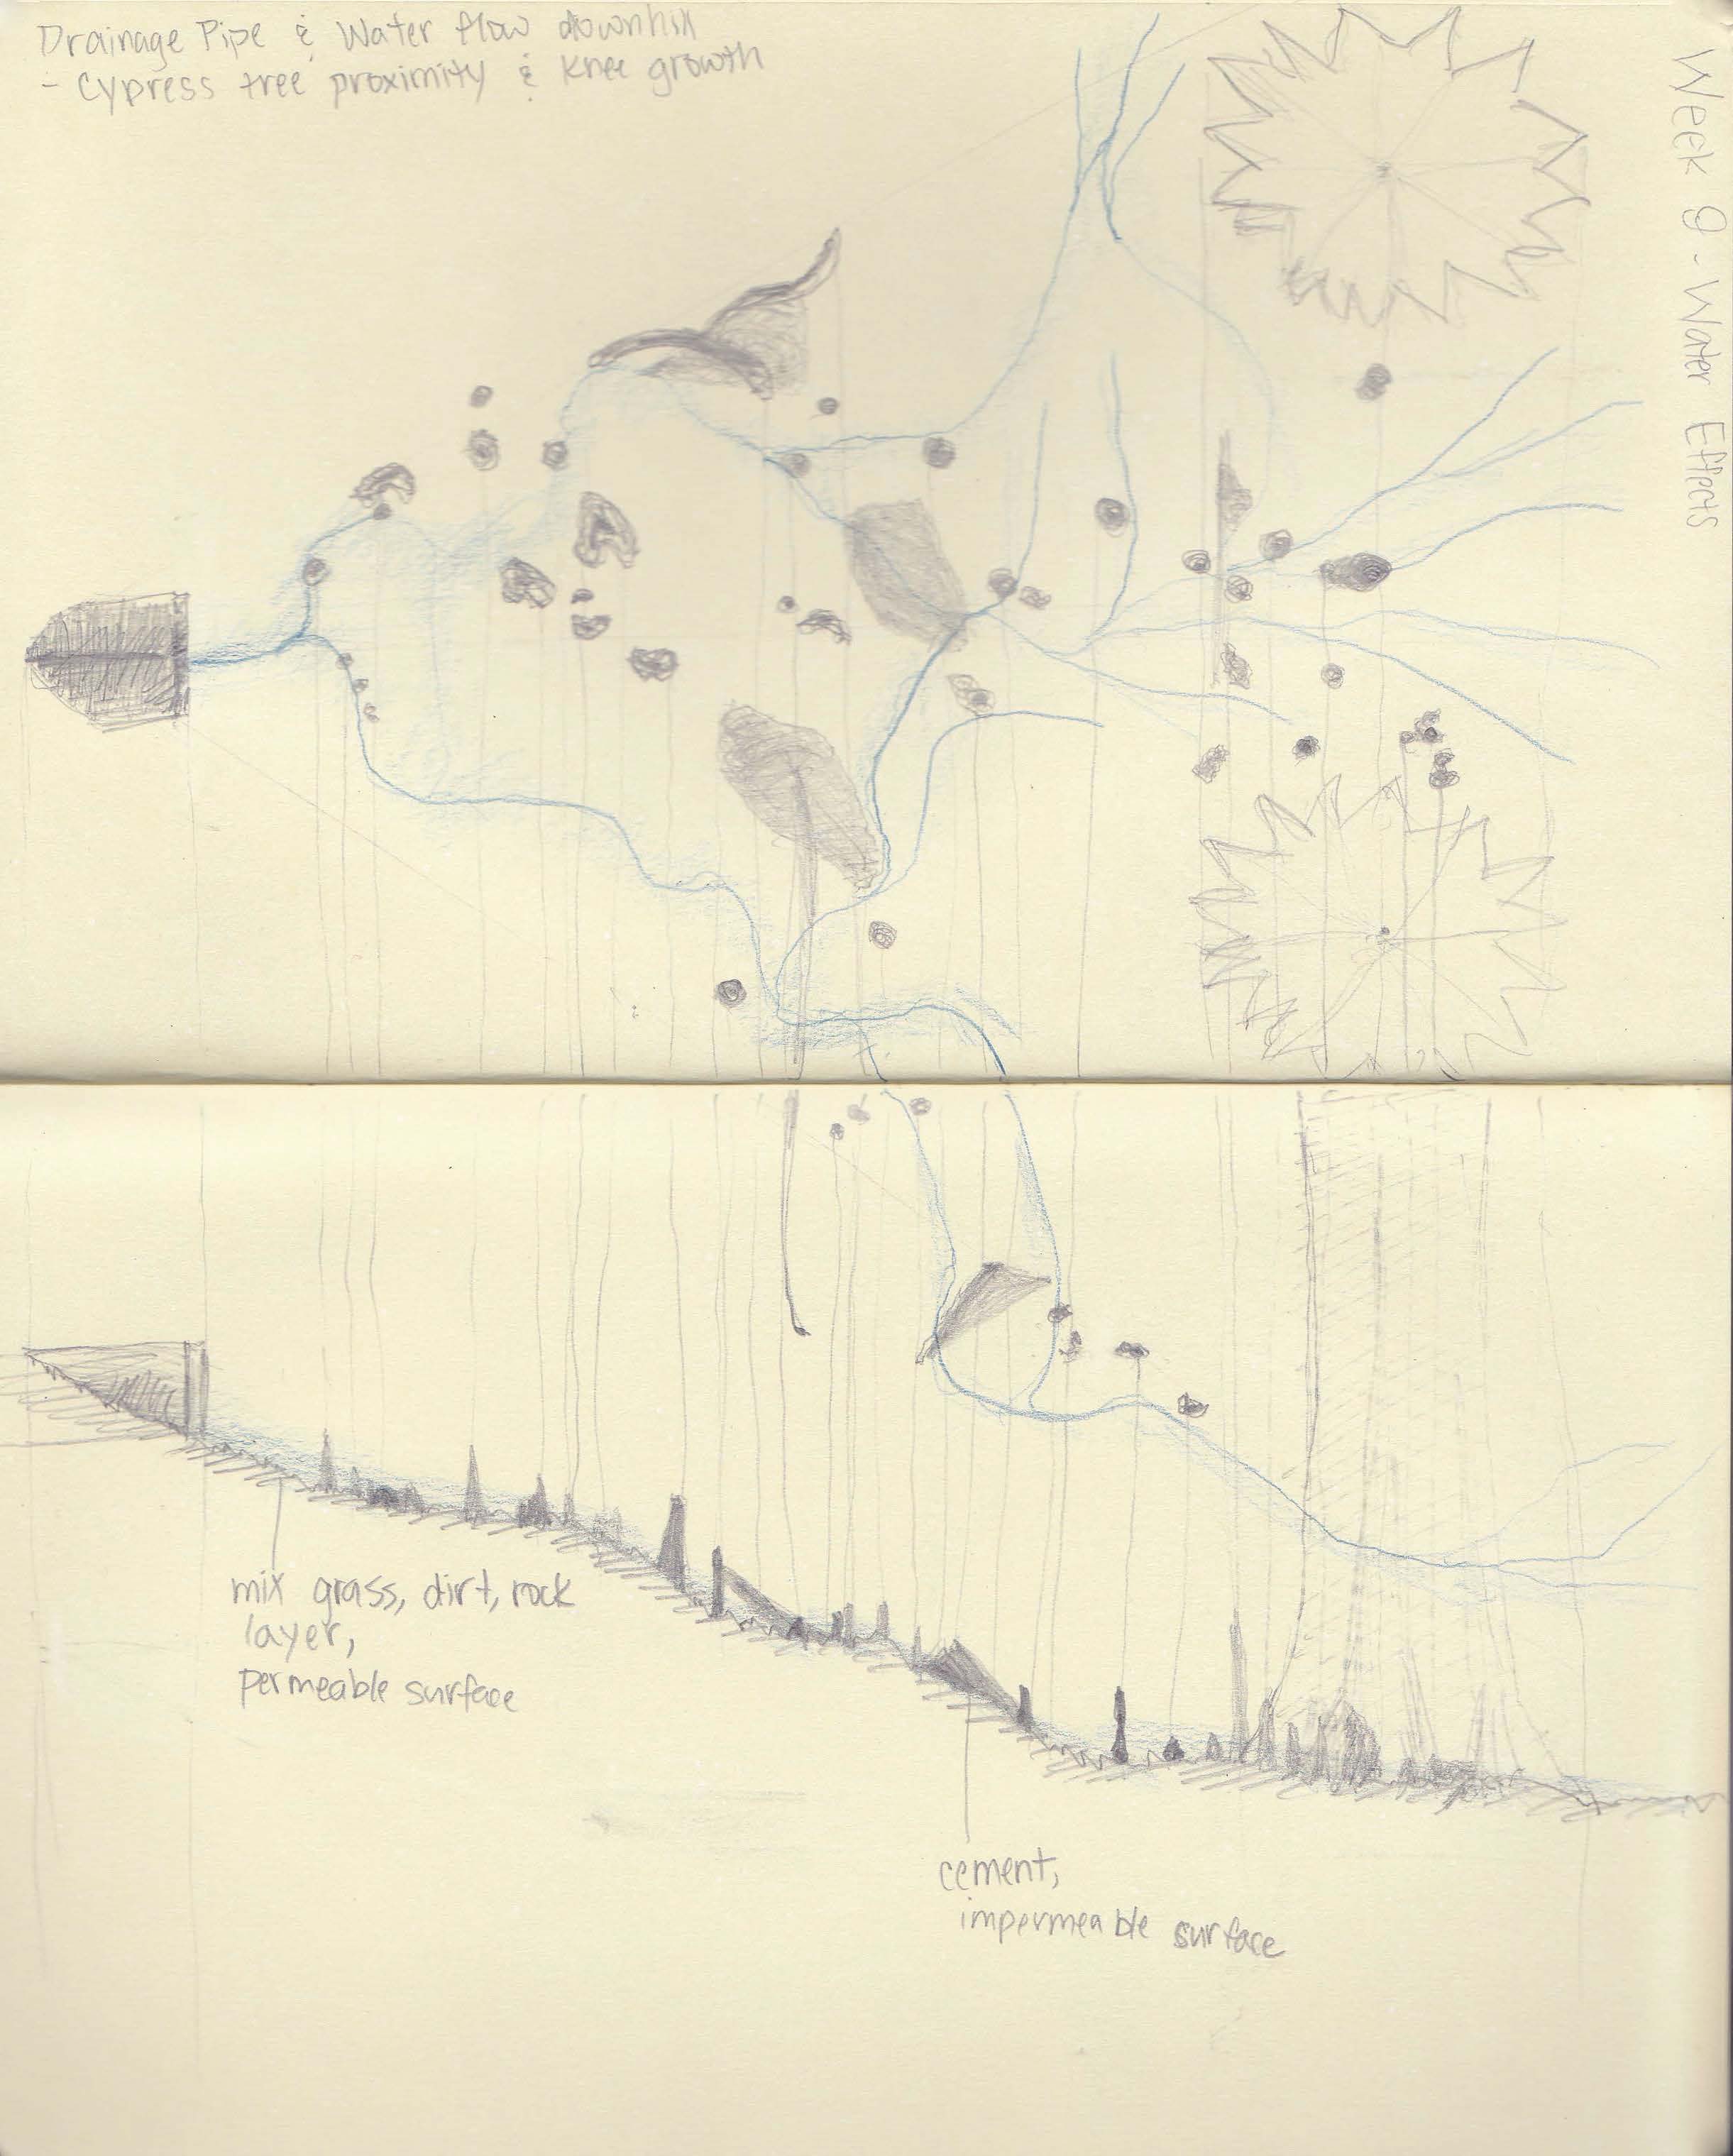 Drainage Pipe & Water flow downhill
- Cypress tree proximity & Knee growth
Week 9 - Water Effects
mix grass, dirt, rock
layer,
permeable surface
cement,
impermeable surface